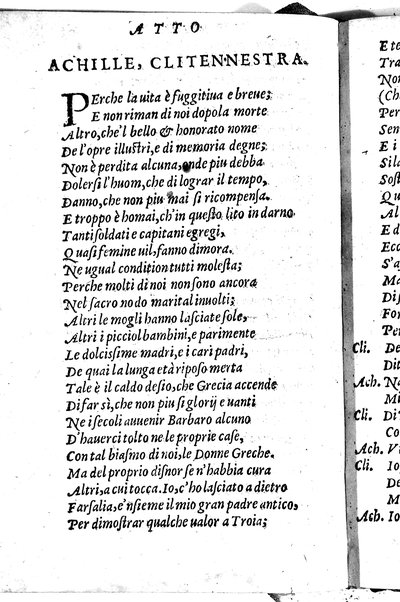 ATTO
ACHILLE, CLITENNESTRA.
PErche la uita è fuggitiua e breue;
E non riman di noi dopo la morte
Altro, che'l bello & honorato nome
De l'opre illustri, e di memoria degne;
Non è perdita alcuna, onde piu debba
Dolersi l'huom, che di lograr il tempo,
Danno, che non piu mai si ricompensa.
E troppo è homai, ch'in questo lito in darno
Tanti soldati e capitani egregi,
Quasi femine uil, fanno dimora.
Ne ugual condition tutti molesta;
Perche molti di noi non sono ancora
Nel sacro nodo marital inuolti;
Altri le mogli hanno lasciate sole,
Altri i picciol bambini, e parimente
Le dolcissime madri, e i cari padri,
De quai la lunga età riposo merta
Tale è il caldo desio, che Grecia accende
Di far sì, che non piu si glorij e uanti
Ne i secoli auuenir Barbaro alcuno
D'hauerci tolto ne le proprie case,
Con tal biasmo di noi, le Donne Greche.
Ma del proprio disnor se n'habbia cura
Altri, a cui tocca. Io, c'ho lasciato a dietro
Farsalia, e'nsieme il mio gran padre antico,
Per dimostrar qualche ualor a Troia;
E te
Tra
Non
(Ch
Per
Sen
E i
Sil
Sost
Qu
A
E d
Ecc
S'a
Ma
Dis
For
Per
Cli. De
Dit
Ach. Na
Mi
Cli. Di
Co
Ach. Vi
Cli. Io
De
Ma
Ach. Io